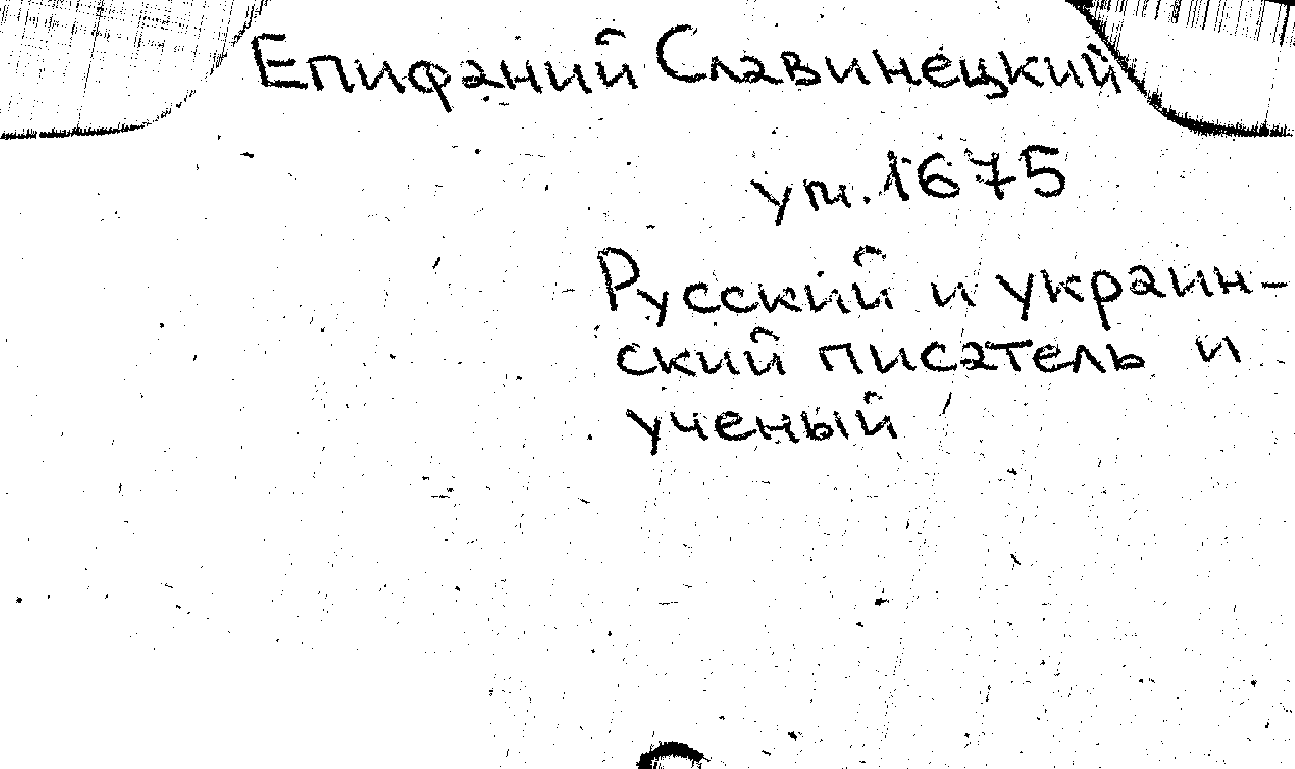 Епифаний Славинецкий
ум. 1675
Русский и украин-
ский писатель и
ученый